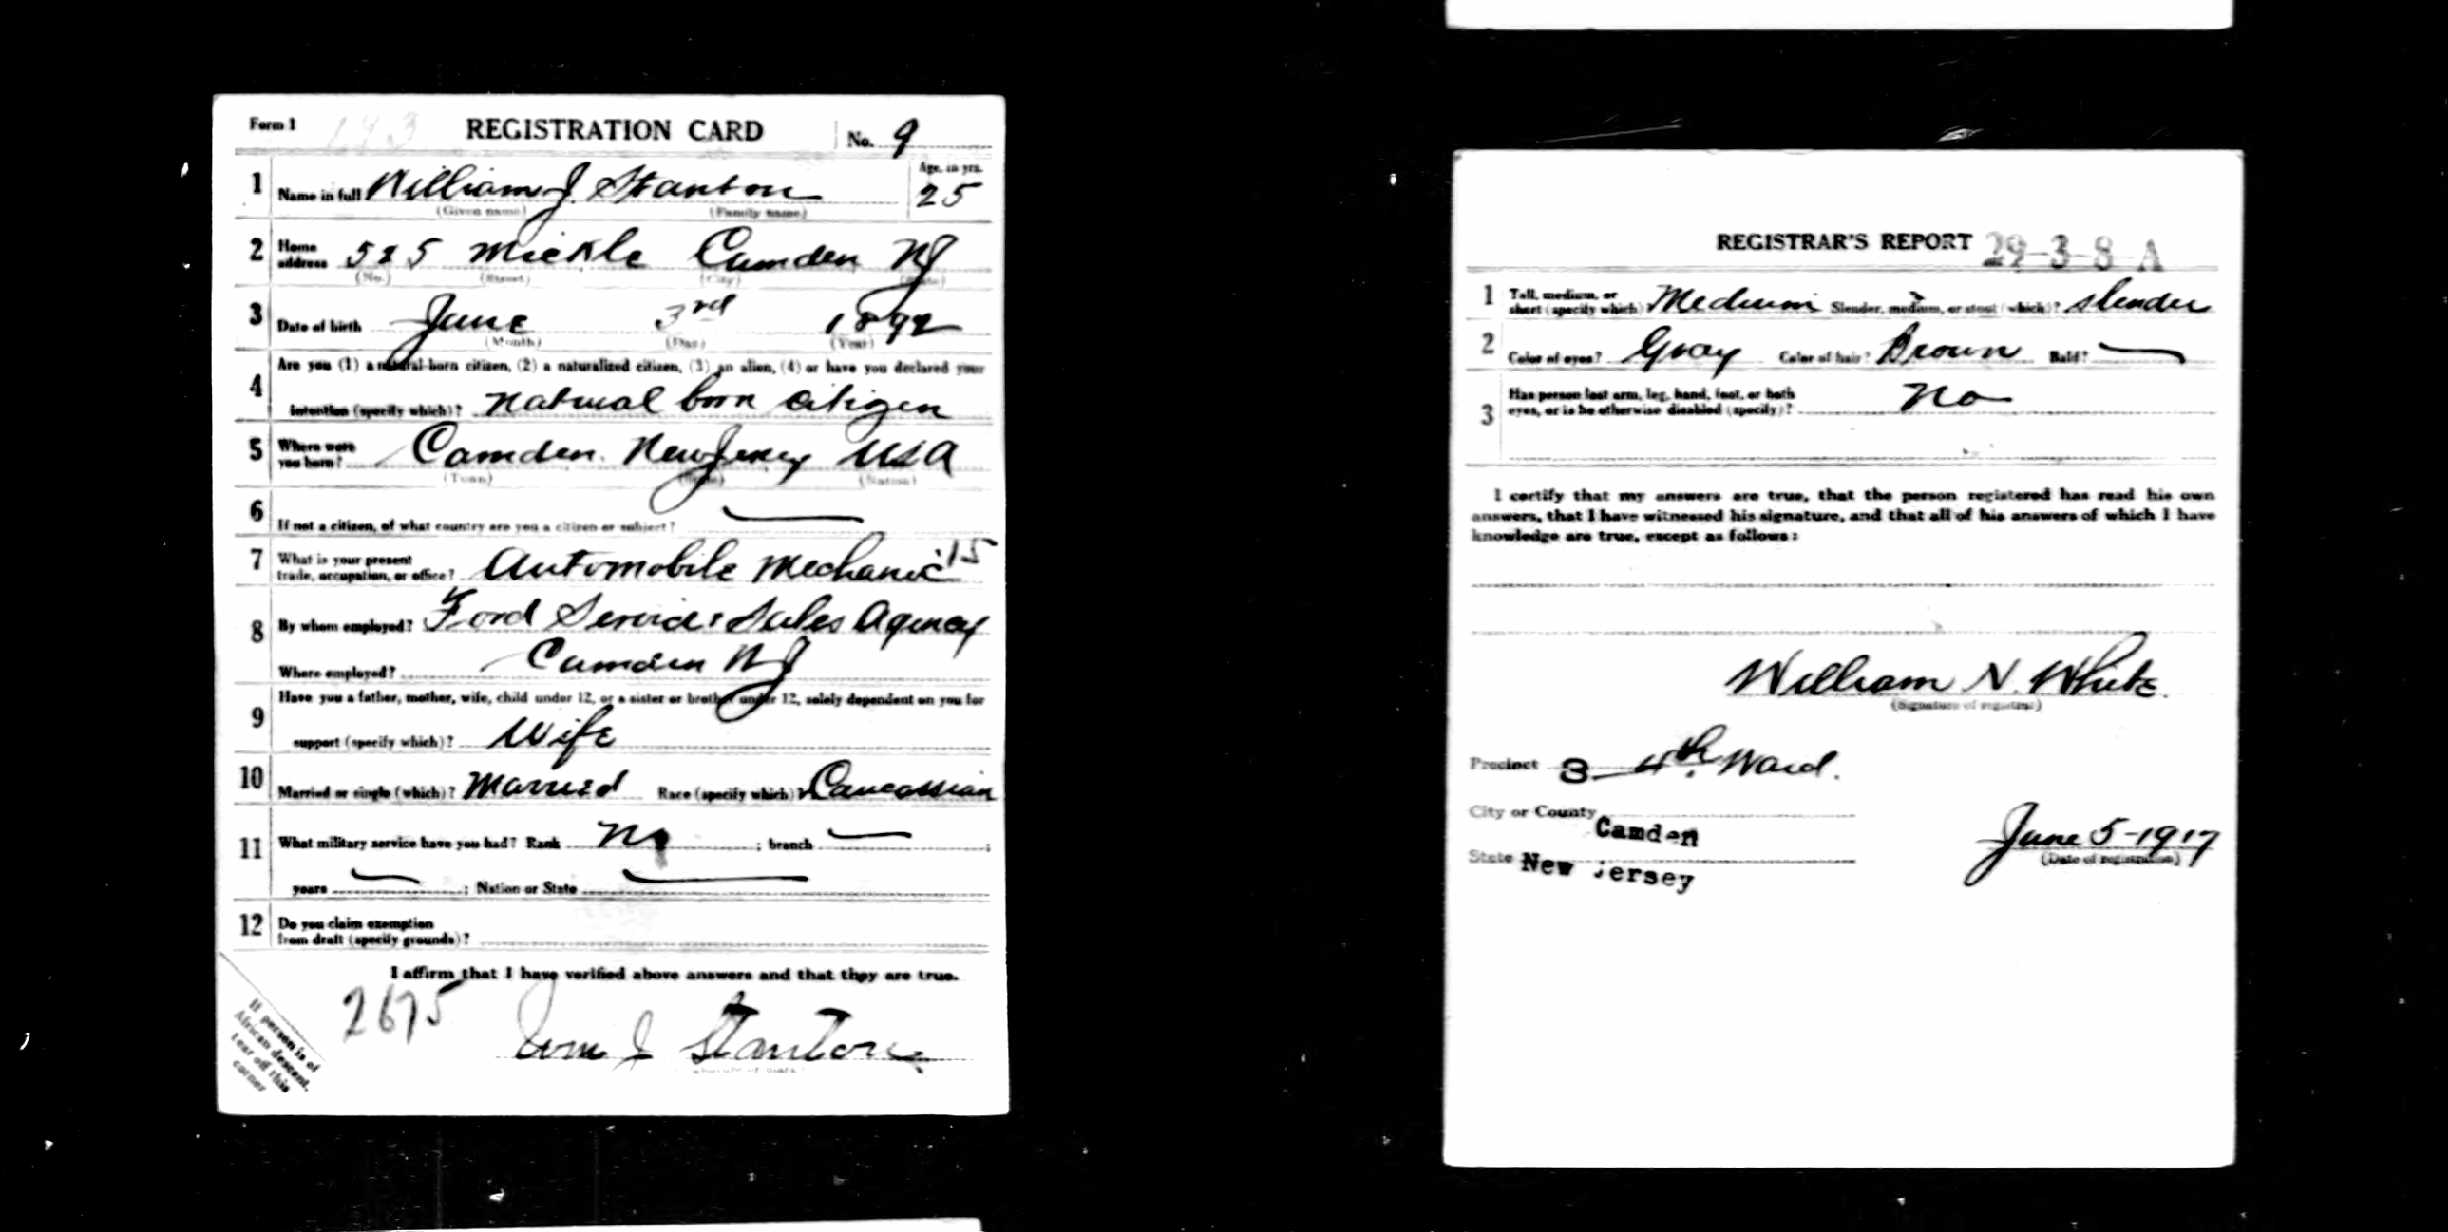 Form 1
REGISTRATION CARD No. 9
1 Name in full William J. Stanton
(Given name) (Family name)
Age, in yrs.
25
2 Home address 525 Mickle Camden NJ
(No.) (Street) (City) (State)
3 Date of birth June 3rd 1892
(Month) (Day) (Year)
4 Are you (1) a natural-born citizen, (2) a naturalized citizen, (3) an alien, (4) or have you declared your
intention (specify which)? natural born citizen
5 Where were you born? Camden. New Jersey USA
(Town) (State) (Nation)
6 If not a citizen, of what country are you a citizen or subject?
7 What is your present
trade, occupation, or office? Automobile Mechanic 15
8 By whom employed? Ford Service & Sales Agency
Where employed? Camden NJ
9 Have you a father, mother, wife, child under 12, or a sister or brother under 12, solely dependent on you for
support (specify which)? Wife
10 Married or single (which)? Married Race (specify which)? Caucassian
11 What military service have you had? Rank No ; branch ;
years ; Nation or State
12 Do you claim exemption
from draft (specify grounds)?
I affirm that I have verified above answers and that they are true.
2675
Wm J Stanton
If person is of
African descent,
tear off this
corner
REGISTRAR'S REPORT 29-3-8 A
1 Tall, medium, or
short (specify which)? Medium Slender, medium, or stout (which)? slender
2 Color of eyes? Gray Color of hair? Brown Bald?
3 Has person lost arm, leg, hand, foot, or both
eyes, or is he otherwise disabled (specify)? No
I certify that my answers are true, that the person registered has read his own
answers, that I have witnessed his signature, and that all of his answers of which I have
knowledge are true, except as follows:
William N. White.
(Signature of registrar)
Precinct 3 4th. Ward.
City or County Camden
State New Jersey
June 5-1917
(Date of registration)